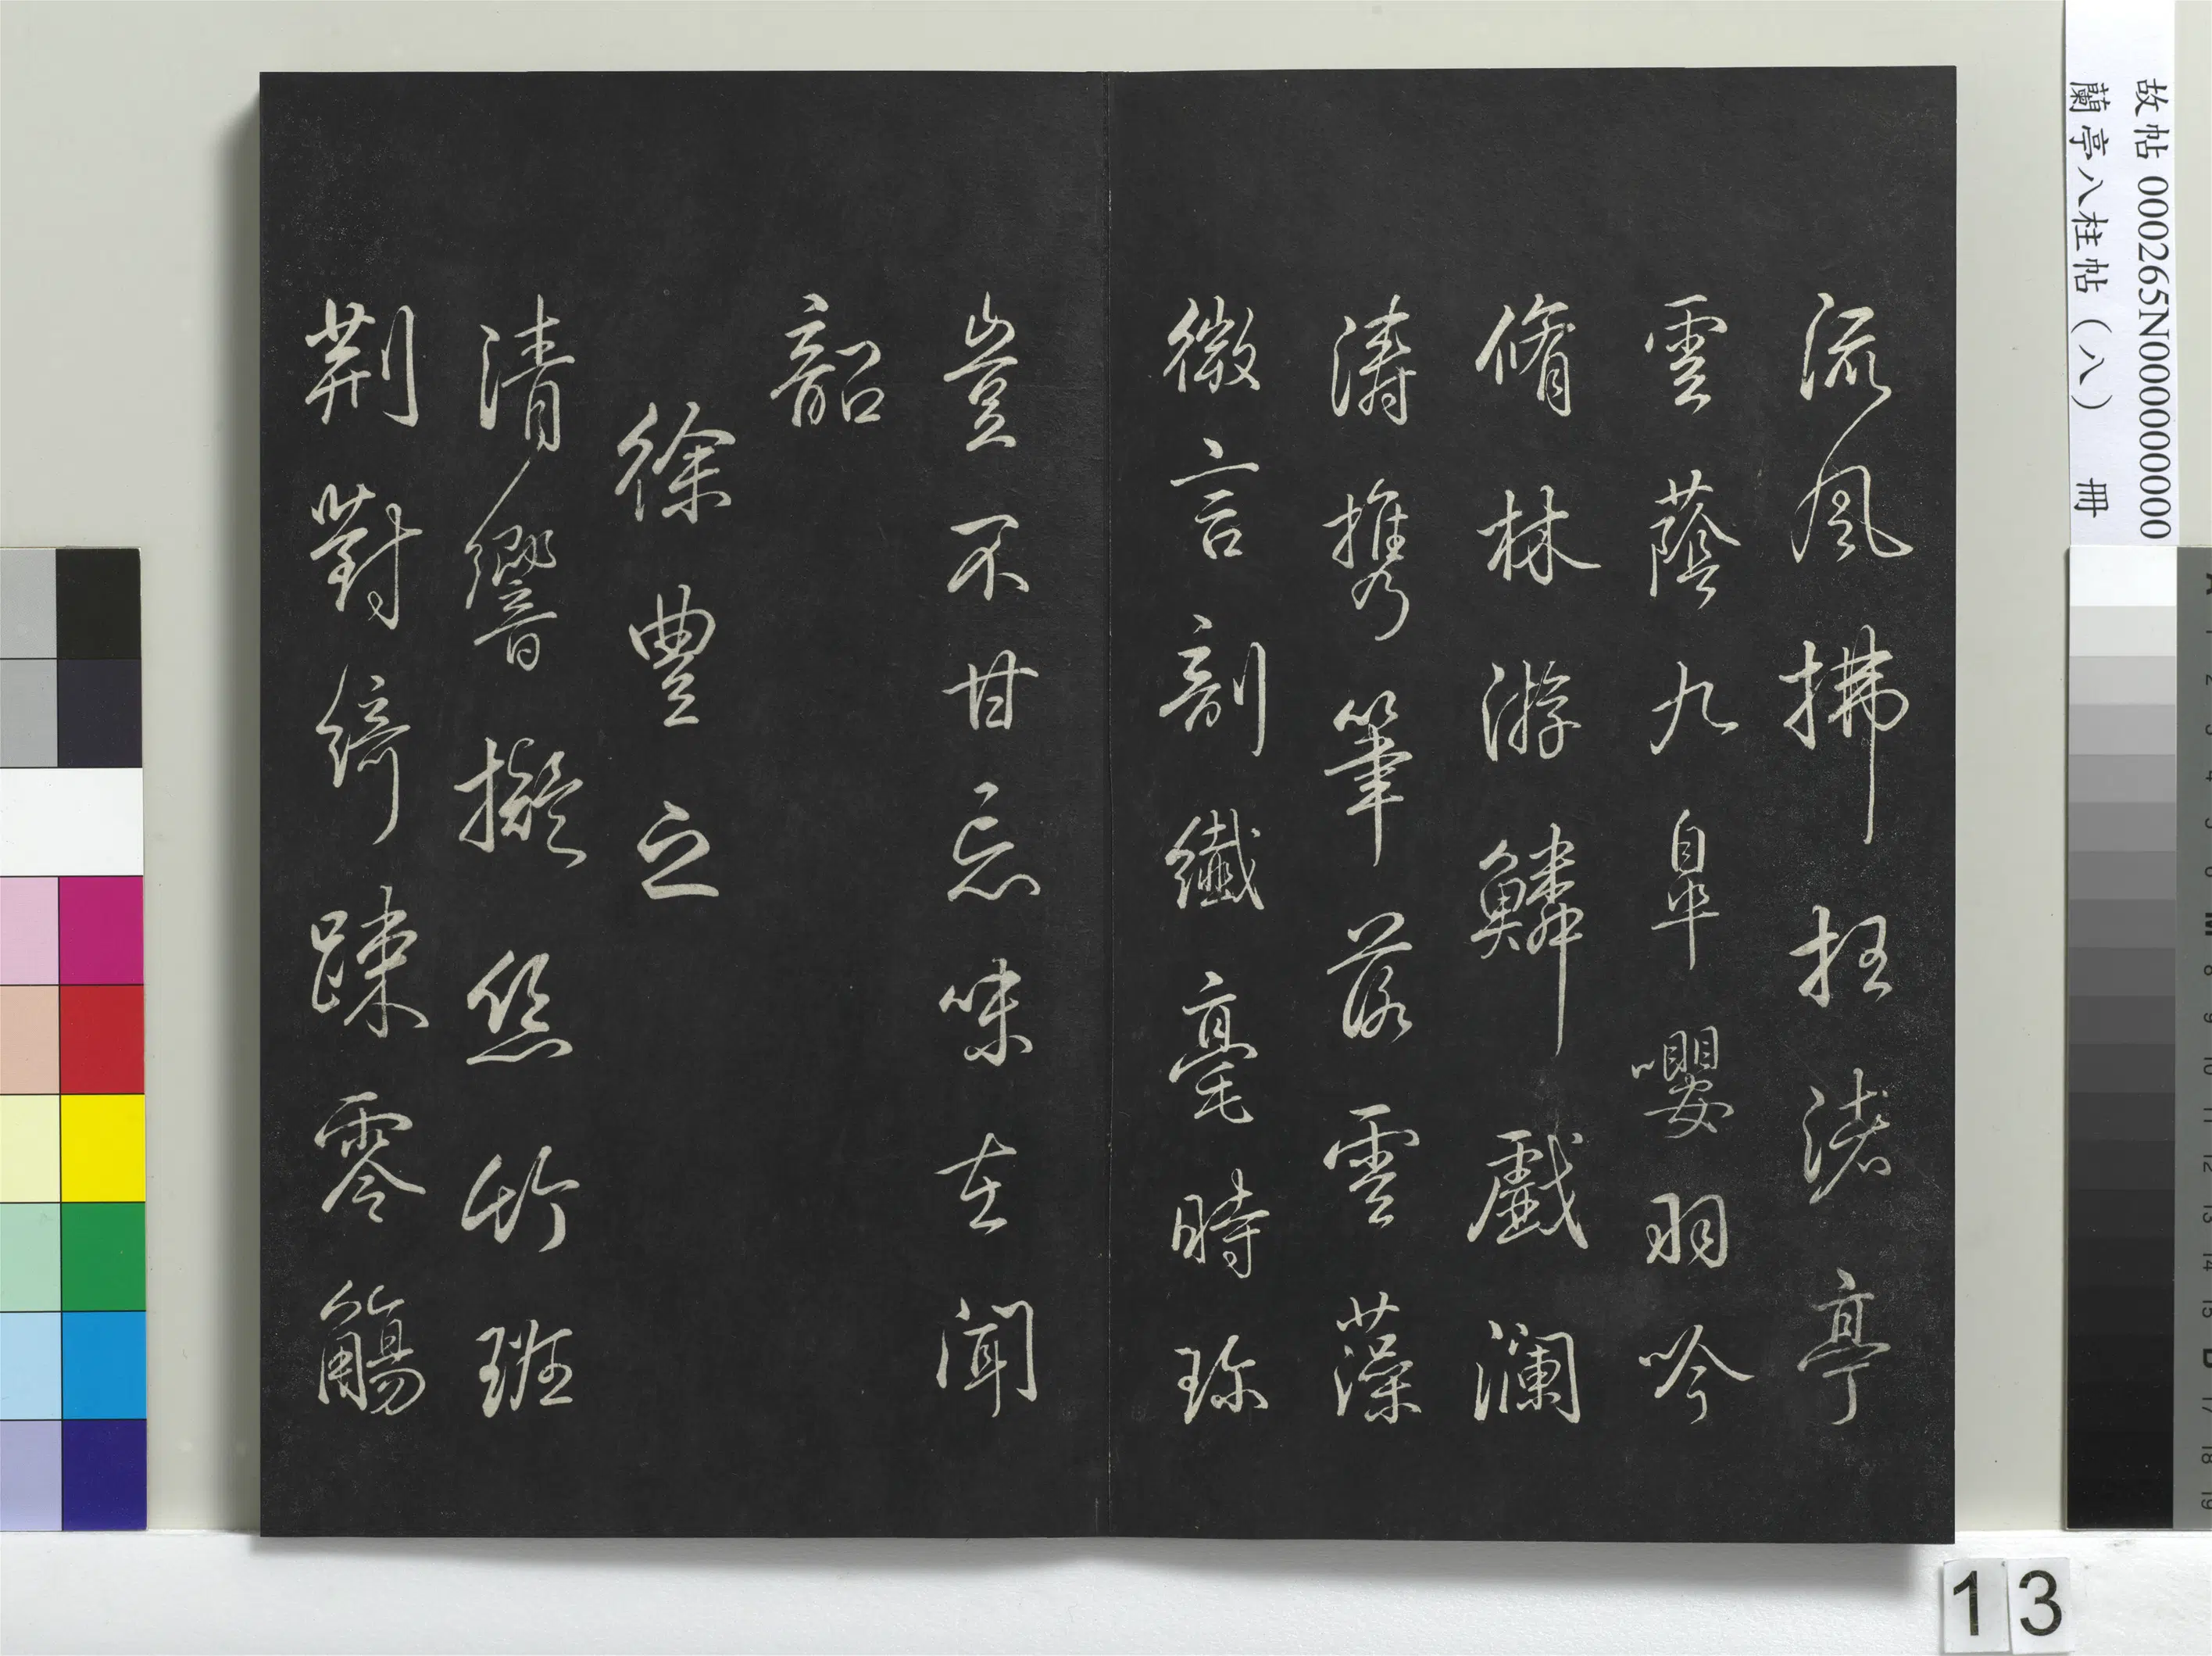 流風拂枉渚亭
雲蔭九皐嚶羽吟
脩林游鱗戲瀾
濤攜筆落雲藻
微言剖纖毫時珎
豈不甘忘味在聞
韶
徐豐之
清響擬絲竹班
荆對綺疎零觴
故帖 000265N000000000
蘭亭八柱帖（八） 冊
13